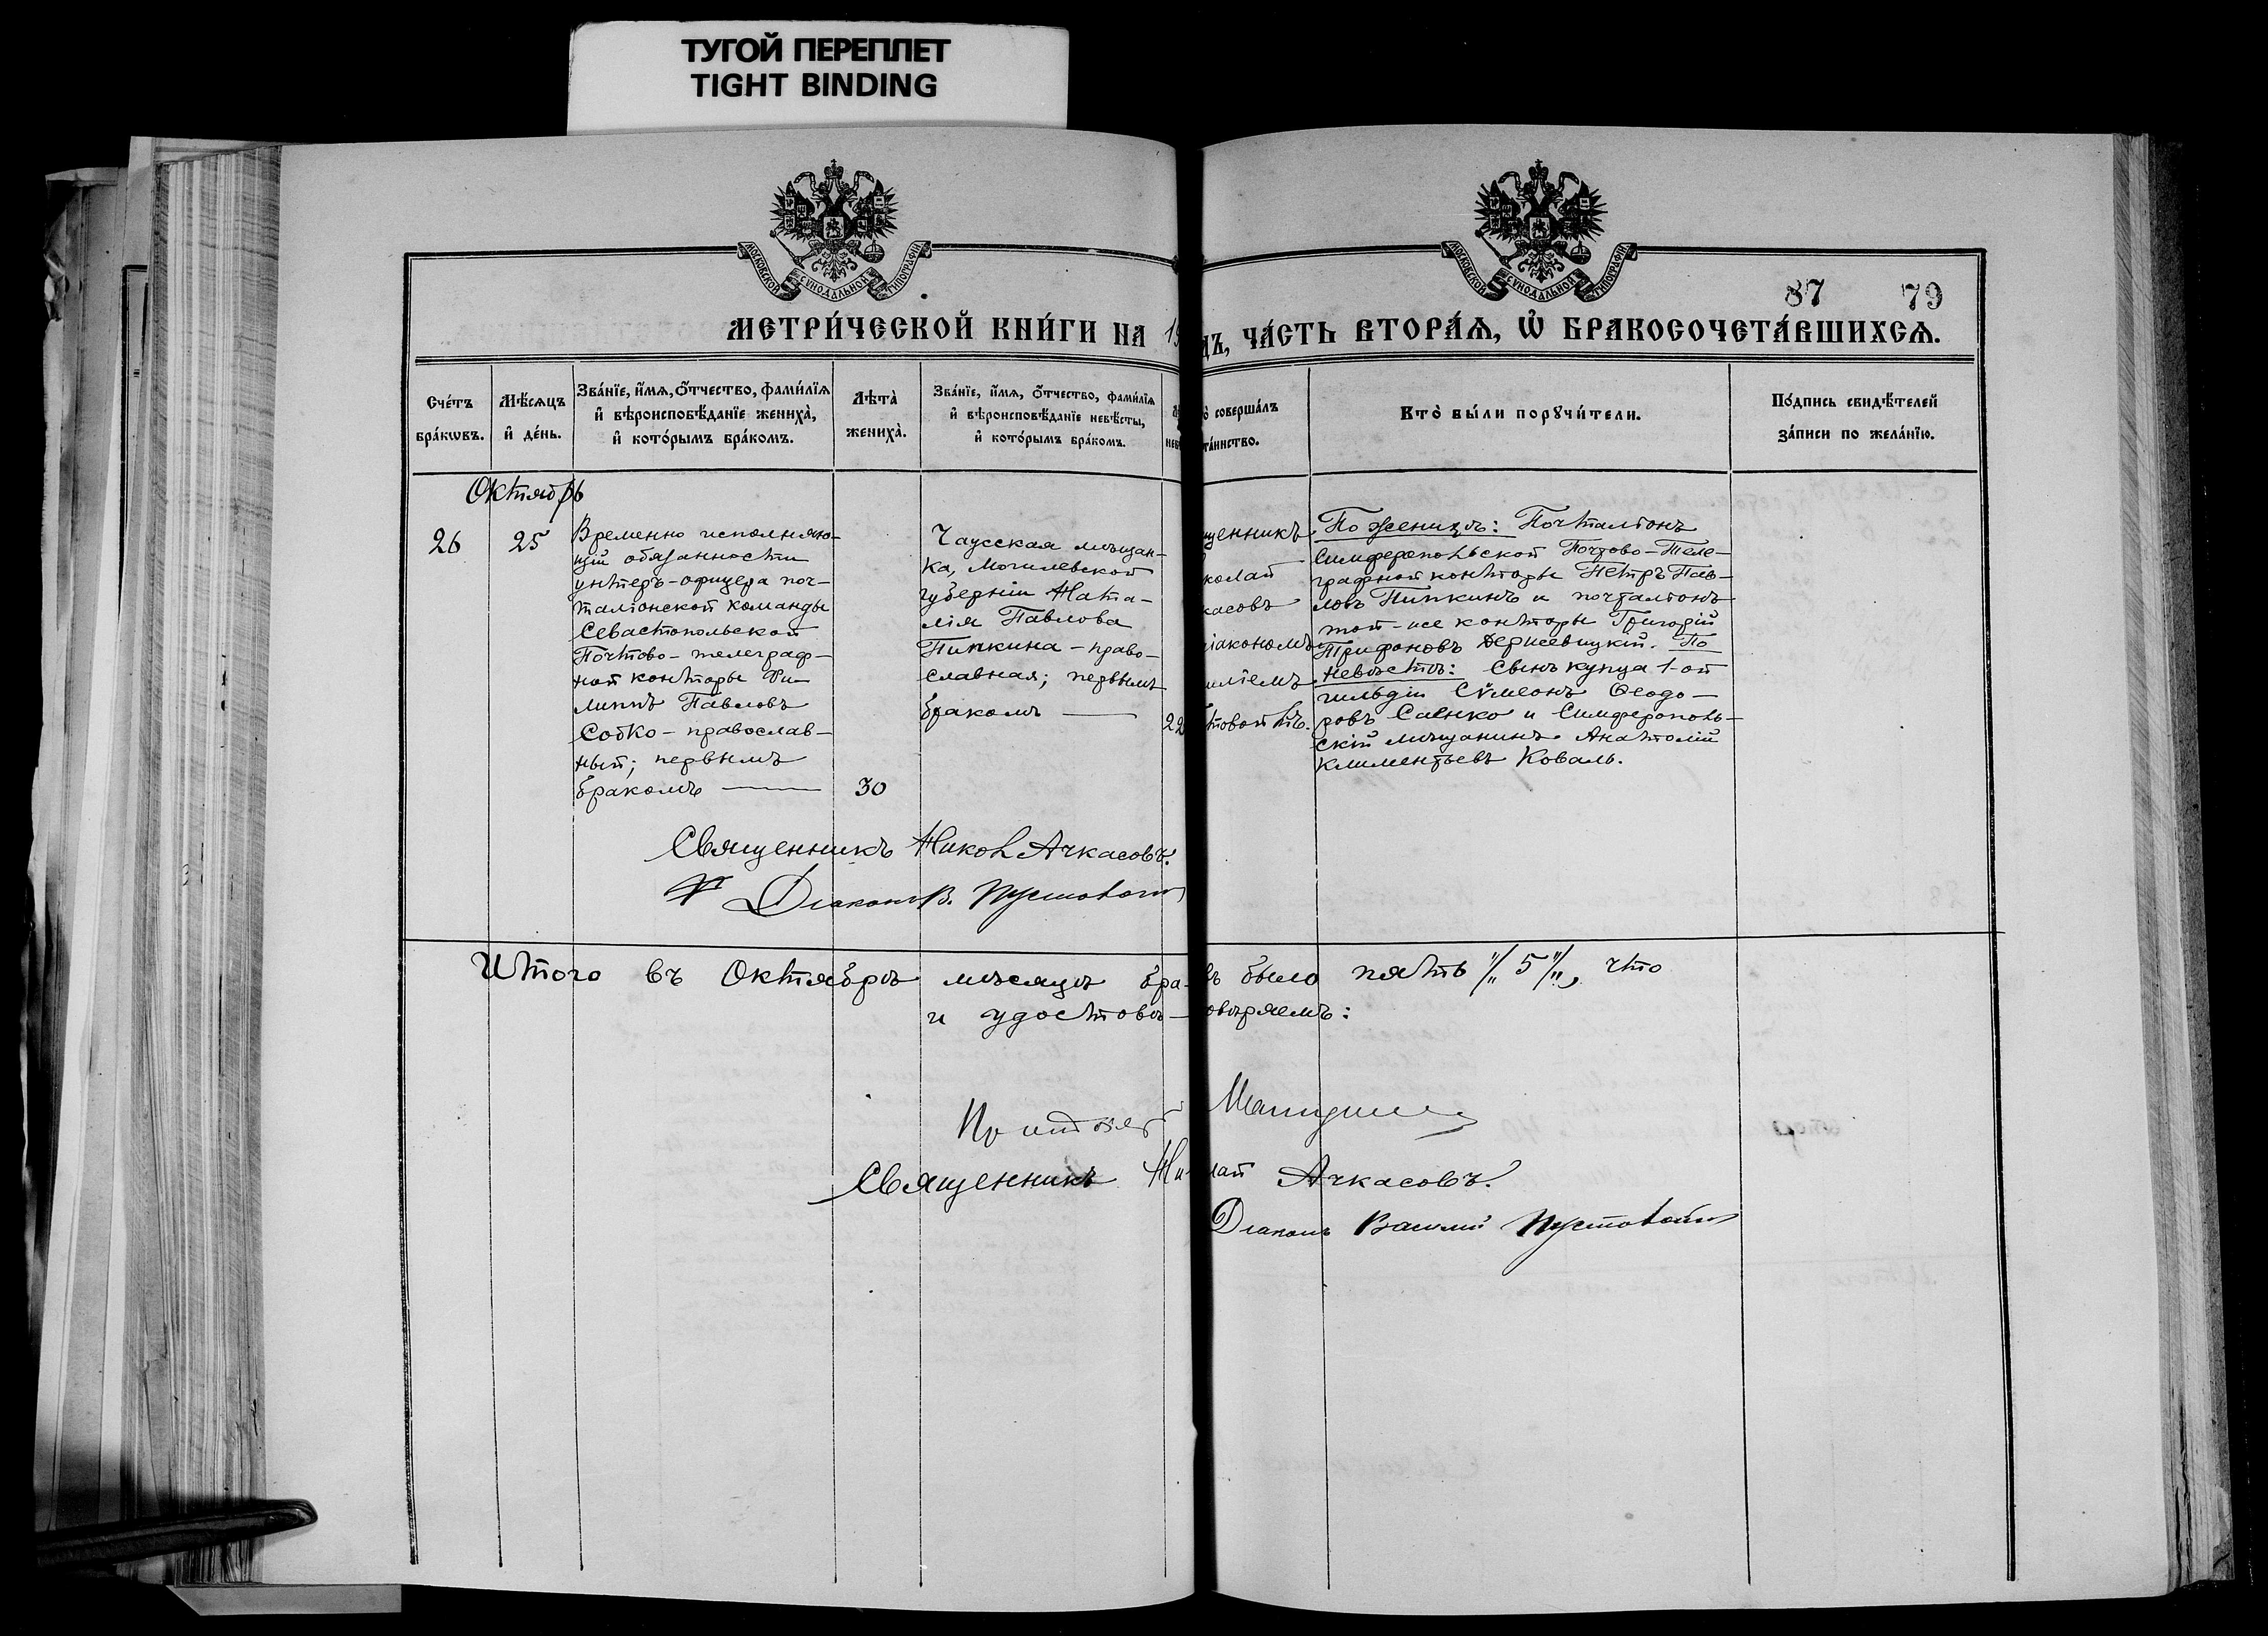 ТУГОЙ ПЕРЕПЛЕТ
TIGHT BINDING
МОСКОВСКОЙ СѴНОДАЛЬНОЙ ТИПОГРАФІИ
МОСКОВСКОЙ СѴНОДАЛЬНОЙ ТИПОГРАФІИ
87 79
МЕТРИ́ЧЕСКОЙ КНИ́ГИ НА 19
ДЪ, ЧА́СТЬ ВТОРА́Я, Ѽ БРАКОСОЧЕТА́ВШИХСЯ.
Сче́тъ
бра́кѡвъ.
Мѣ́сяцъ
и҆ де́нь.
Зва́нїе, и҆́мя, ѻ҆́тчество, фами́лїя
и҆ вѣроисповѣ́данїе жениха̀,
и҆ кото́рымъ бра́комъ.
Лѣта̀
жениха̀.
Зва́нїе, и҆́мя, ѻ҆́тчество, фами́лїя
и҆ вѣроисповѣ́данїе невѣ́сты,
и҆ кото́рымъ бра́комъ.
о̀ соверша́лъ
та́инство.
Кто̀ бы́ли порꙋчи́тели.
По́дпись свидѣ́телей
за́писи по жела́нїю.
Октябрь
26
25
Временно исполняю-
щій обязанности
унтеръ-офицера поч-
таліонской команды
Севастопольской
Почтово-телеграф-
ной конторы Фи-
липпъ Павловъ
Собко - православ-
ный; первымъ
бракомъ —
30
Чаусская мѣщан-
ка, Могилевской
губерніи Ната-
лія Павлова
Пипкина - право-
славная; первымъ
бракомъ —
22
щенникъ
колай
касовъ
іакономъ
иліемъ
товойтъ.
По женихѣ: Почталіонъ
Симферопольской Почтово-Теле-
графной конторы Петръ Пав-
ловъ Пипкинъ и почталіонъ
той-же конторы Григорій
Трифоновъ Держевицкій. По
невѣстѣ: Сынъ купца 1-ой
гильдіи Сѵмеонъ Ѳеодо-
ровъ Саенко и Симферополь-
скій мѣщанинъ Анатолій
Климентьевъ Коваль.
Священникъ Никол Ачкасовъ.
Діаконъ В. Пустовойт
Итого въ Октябрѣ мѣсяцѣ бра-
въ было пять "/5/", что
и удостовѣ-
овѣряемъ:
Священникъ Ни лай Ачкасовъ.
Діаконъ Василій Пустовойтъ